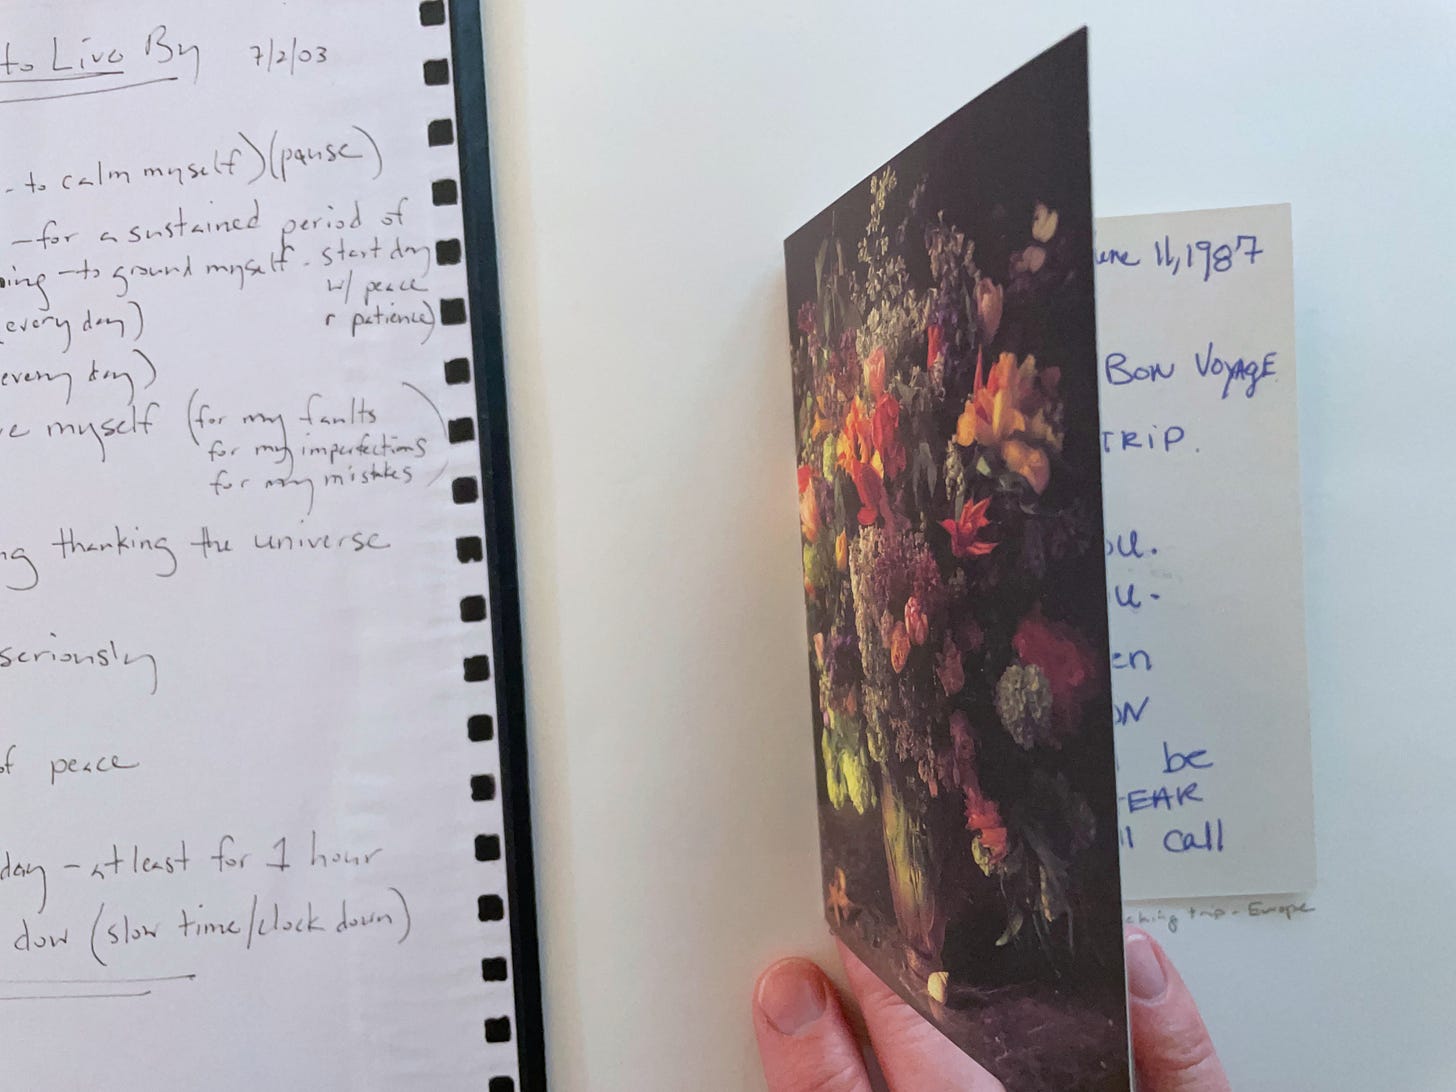 to Live By 7/2/03
- to calm myself) (pause)
- for a sustained period of
ing - to ground myself - start day
w/ peace
r patience)
every day)
every day)
e myself (for my faults
for my imperfections
for my mistakes
ng thanking the universe
seriously
of peace
day - at least for 1 hour
dow (slow time/clock down)
une 11, 1987
BON VOYAGE
TRIP.
ou.
u.
en
ON
be
EAR
ll call
ching trip - Europe